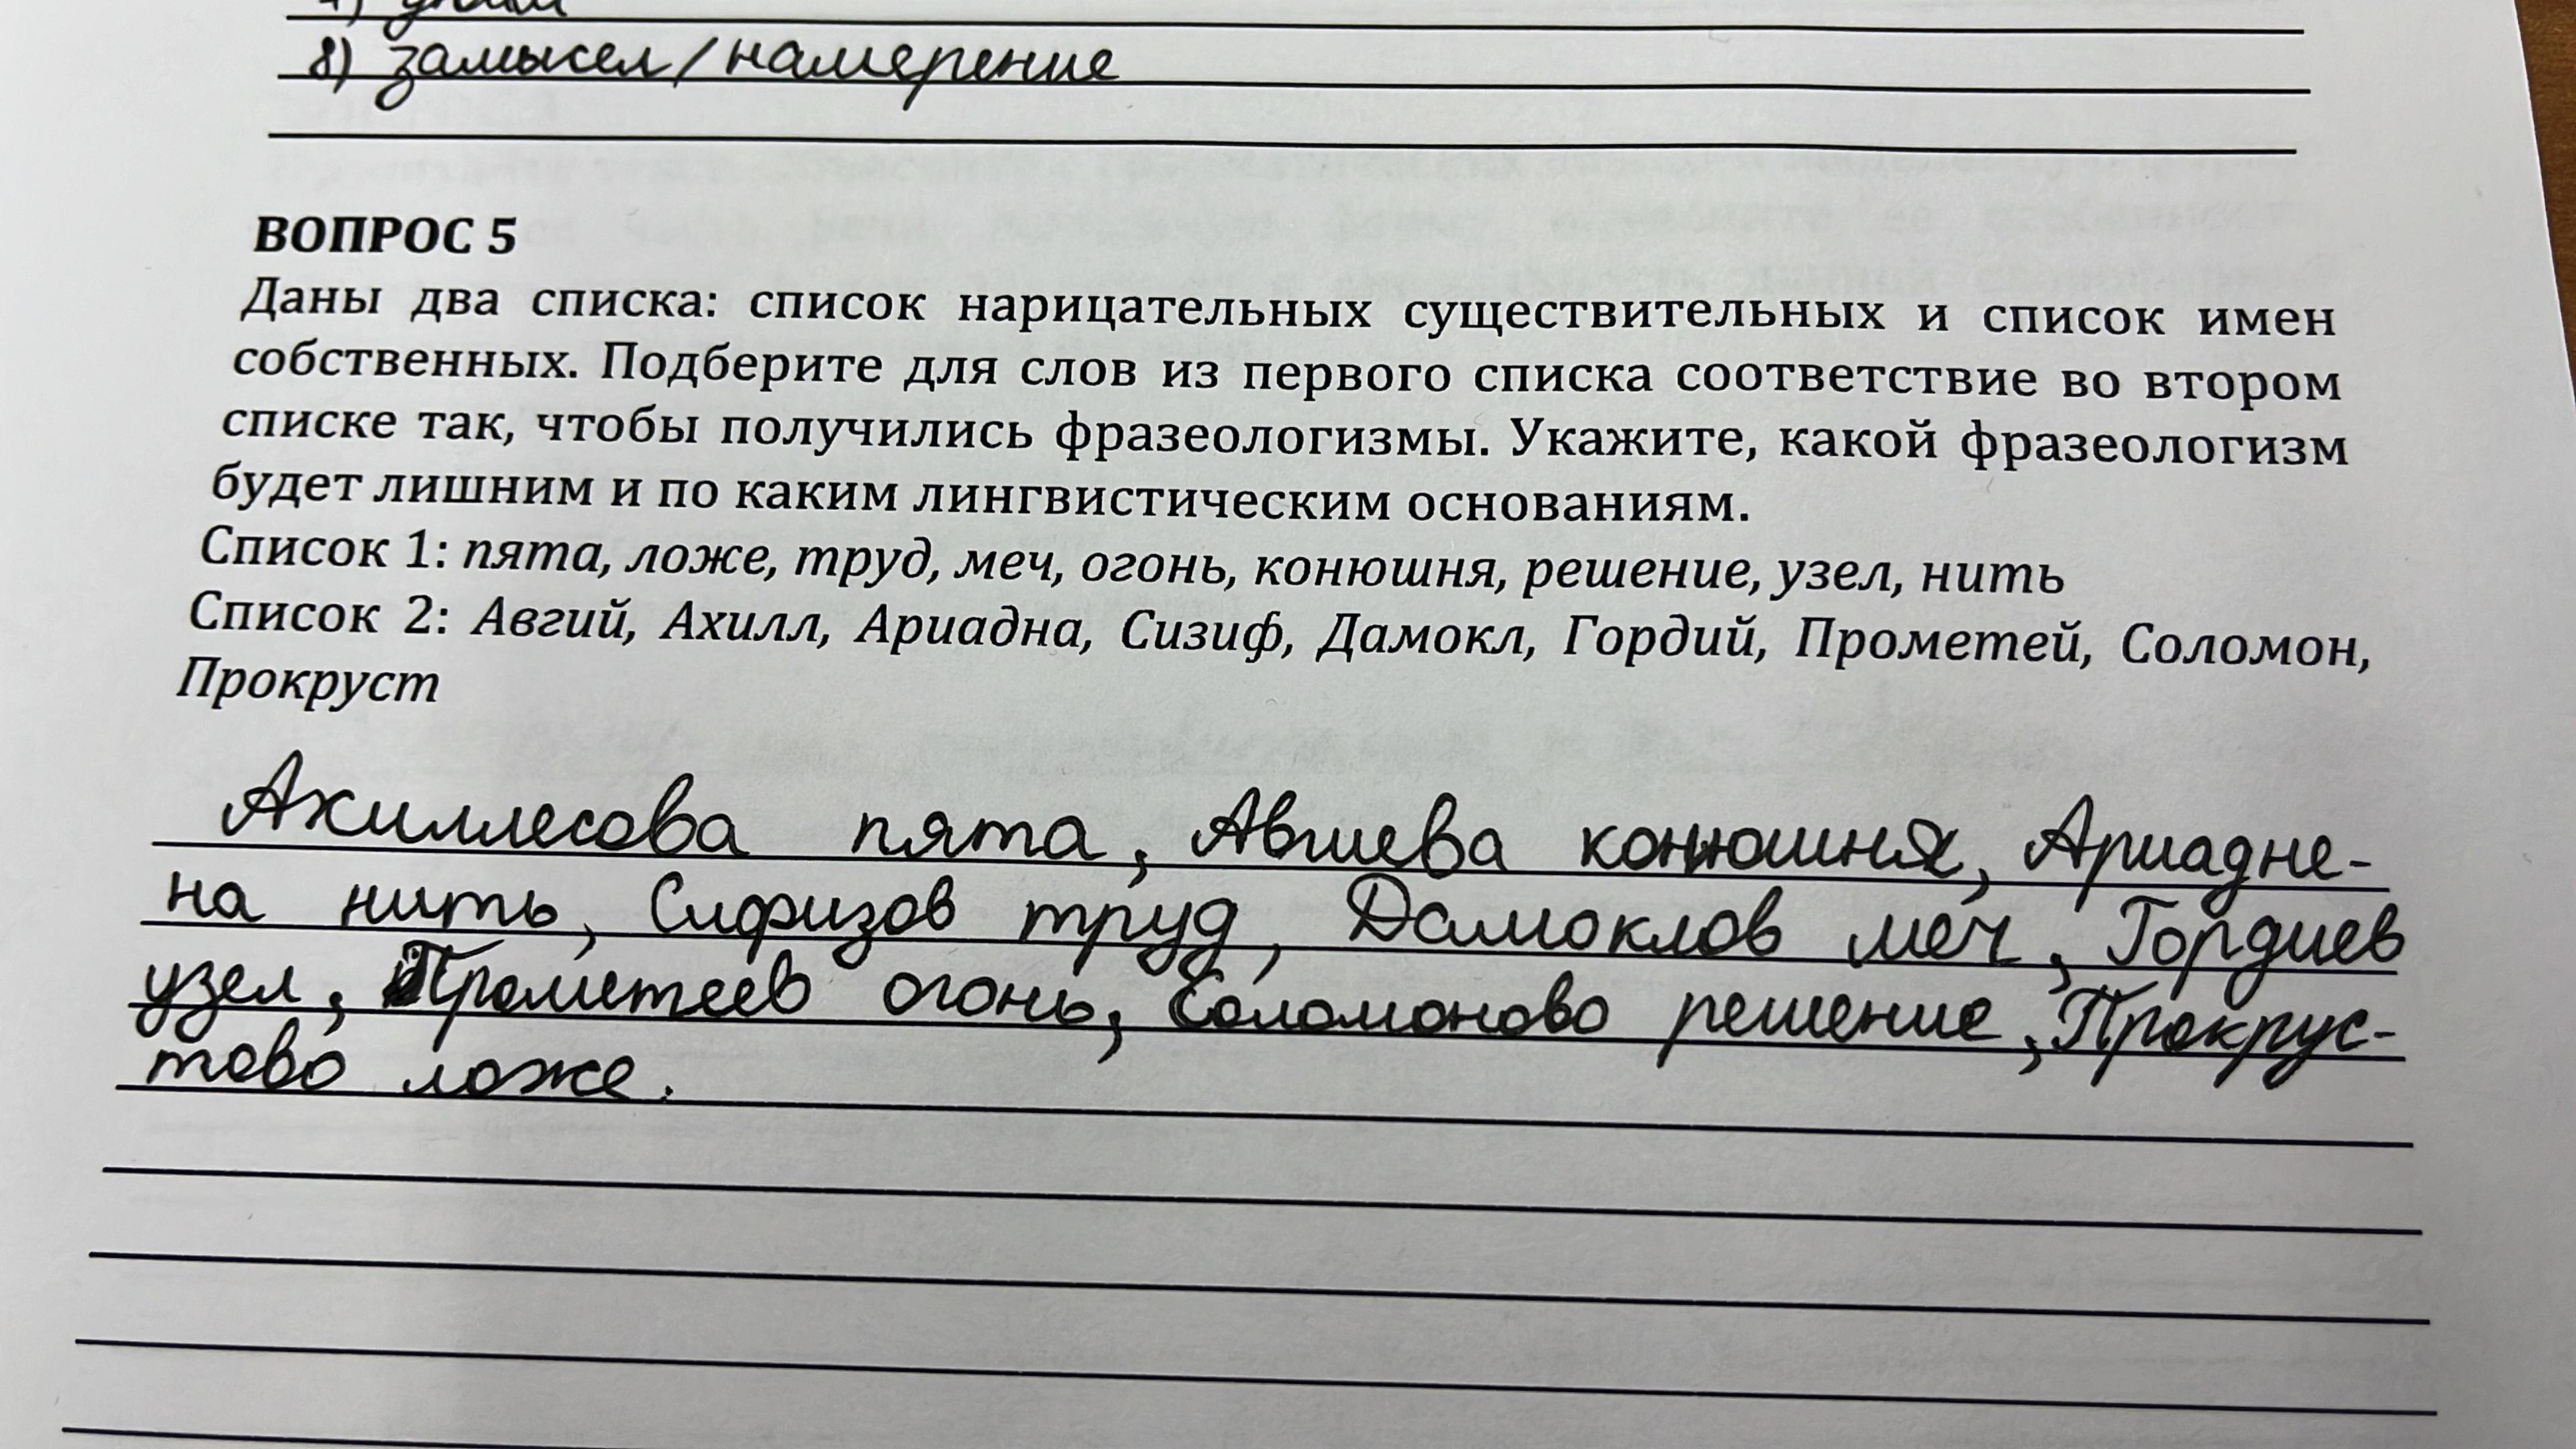 8) замысел/намерение
ВОПРОС 5
Даны два списка: список нарицательных существительных и список имен
собственных. Подберите для слов из первого списка соответствие во втором
списке так, чтобы получились фразеологизмы. Укажите, какой фразеологизм
будет лишним и по каким лингвистическим основаниям.
Список 1: пята, ложе, труд, меч, огонь, конюшня, решение, узел, нить
Список 2: Авгий, Ахилл, Ариадна, Сизиф, Дамокл, Гордий, Прометей, Соломон,
Прокруст
Ахиллесова пята, Авгиева конюшня, Ариадне-
на нить, Сифизов труд, Дамоклов меч, Гордиев
узел, Прометеев огонь, Соломоново решение, Прокрус-
тово ложе.